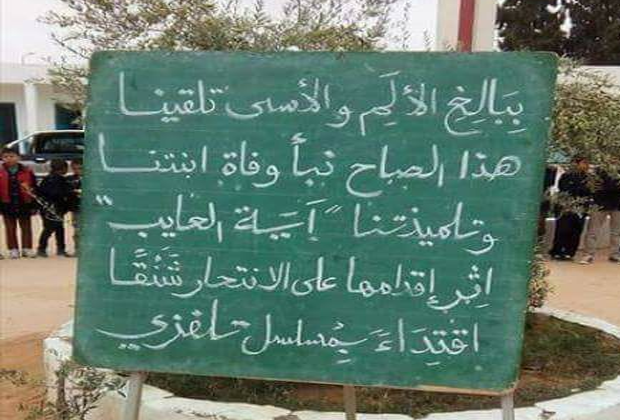 بِبَالِغِ الألَمِ والأسى تلقينا
هذا الصباح نبأ وفاة ابنتنا
وتلميذتنا "آية العايب"
اِثْرَ إقدامها على الانتحار شَنْقًا
اقتِدَاءً بِمُسلسل تلفزي